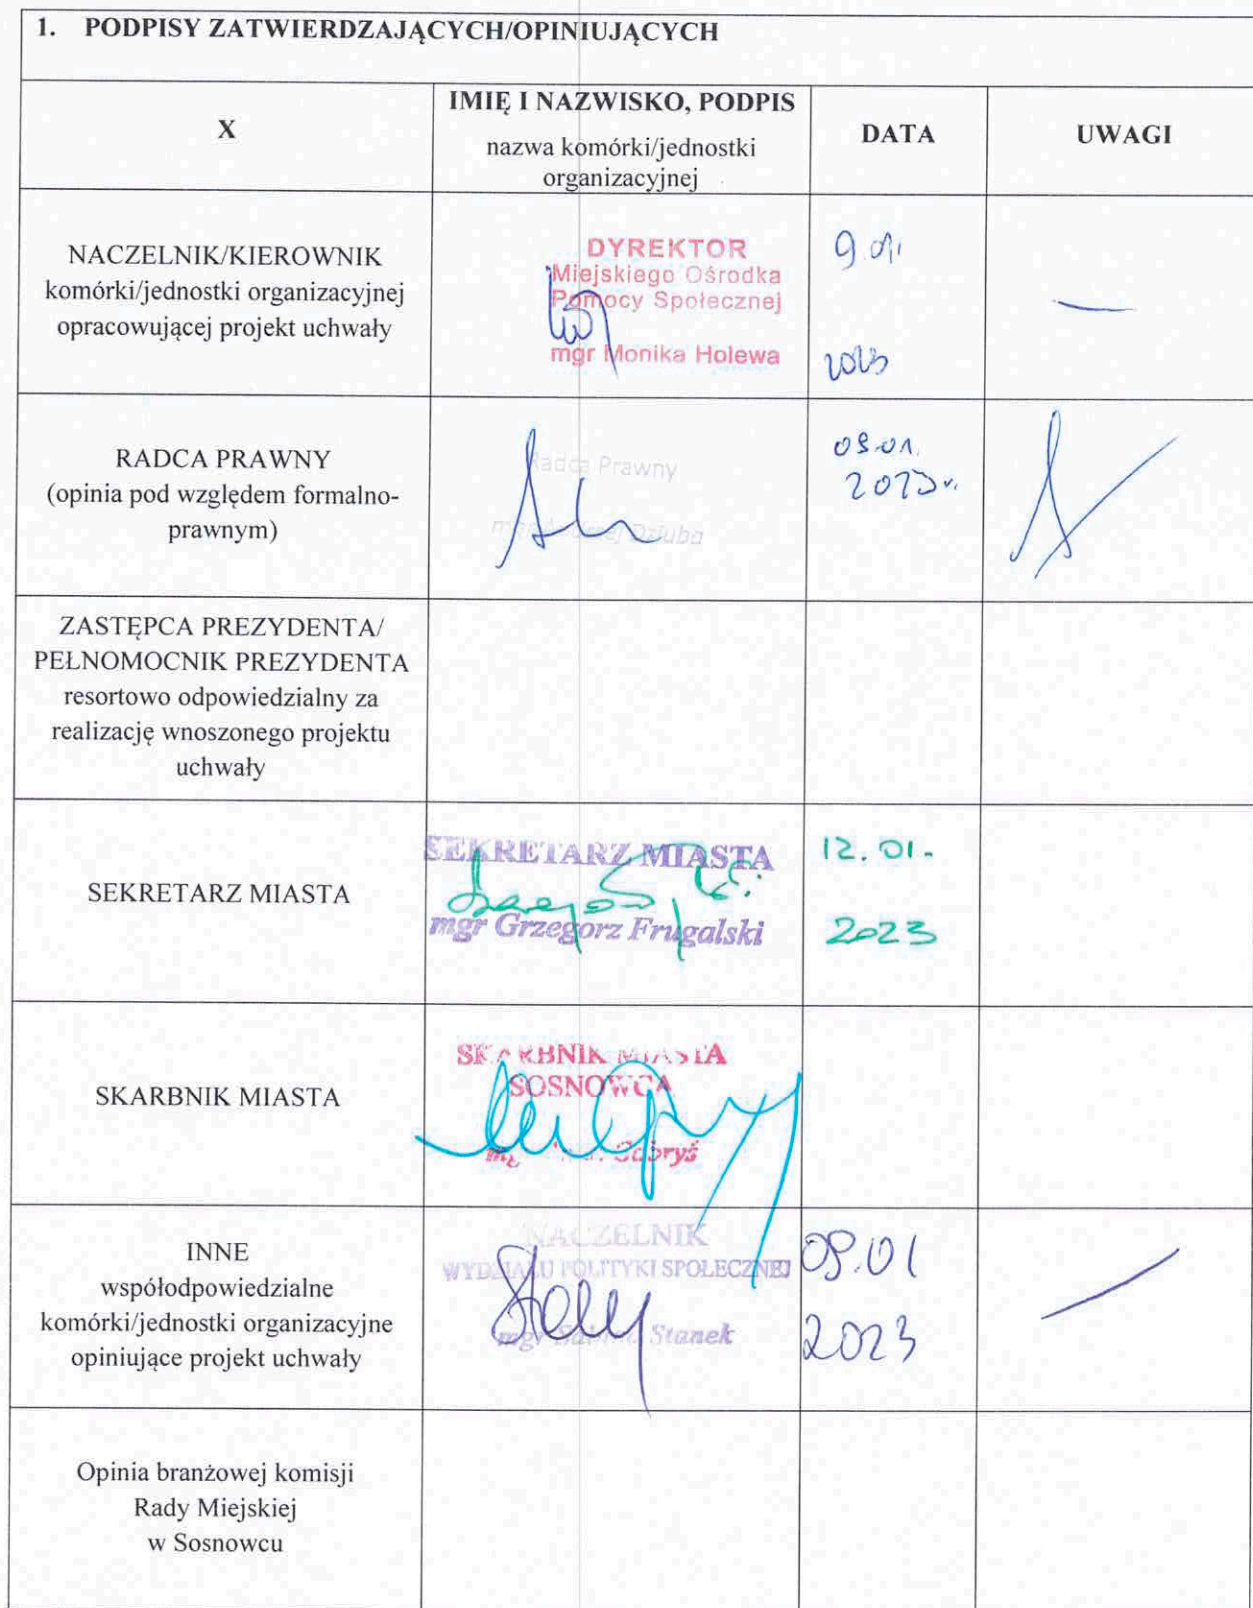 1. PODPISY ZATWIERDZAJĄCYCH/OPINIUJĄCYCH
X
IMIĘ I NAZWISKO, PODPIS
nazwa komórki/jednostki
organizacyjnej
DATA
UWAGI
NACZELNIK/KIEROWNIK
komórki/jednostki organizacyjnej
opracowującej projekt uchwały
DYREKTOR
Miejskiego Ośrodka
Pomocy Społecznej
mgr Monika Holewa
9.01.
2023
RADCA PRAWNY
(opinia pod względem formalno-
prawnym)
Radca Prawny
mgr Andrzej Dziuba
09.01.
2023 r.
ZASTĘPCA PREZYDENTA/
PEŁNOMOCNIK PREZYDENTA
resortowo odpowiedzialny za
realizację wnoszonego projektu
uchwały
SEKRETARZ MIASTA
SEKRETARZ MIASTA
mgr Grzegorz Frugalski
12.01.
2023
SKARBNIK MIASTA
SKARBNIK MIASTA
SOSNOWCA
mgr Gabryś
INNE
współodpowiedzialne
komórki/jednostki organizacyjne
opiniujące projekt uchwały
NACZELNIK
WYDZIAŁU POLITYKI SPOŁECZNEJ
mgr Stanek
09.01
2023
Opinia branżowej komisji
Rady Miejskiej
w Sosnowcu